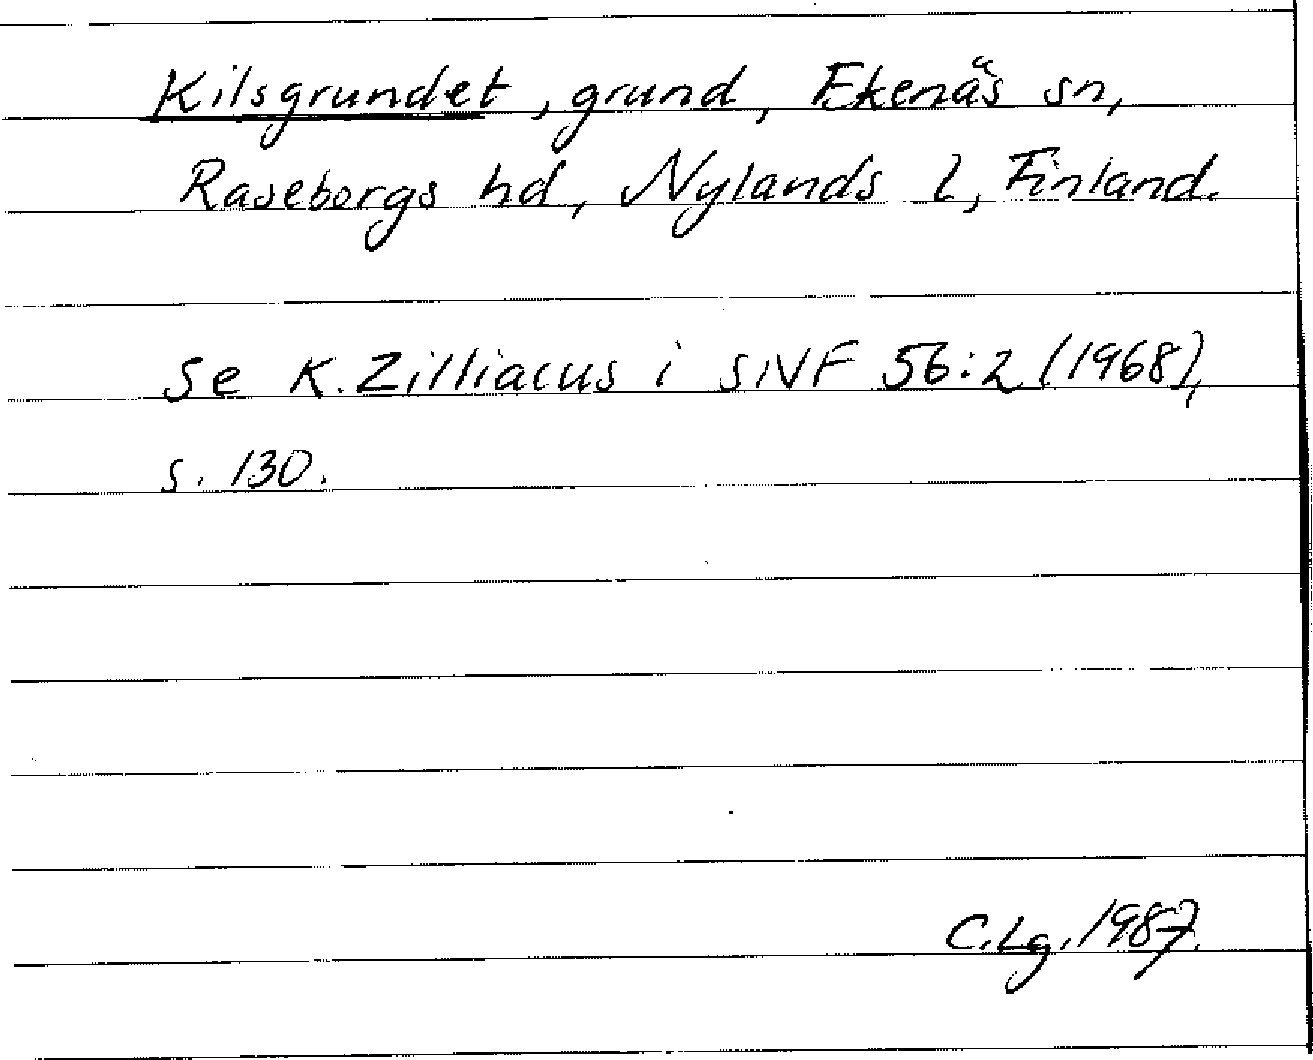 Kilsgrundet, grund, Ekenäs sn,
Raseborgs hd, Nylands l, Finland.
Se K. Zilliacus i SNF 56:2 (1968),
s. 130.
C.Lg. 1987.